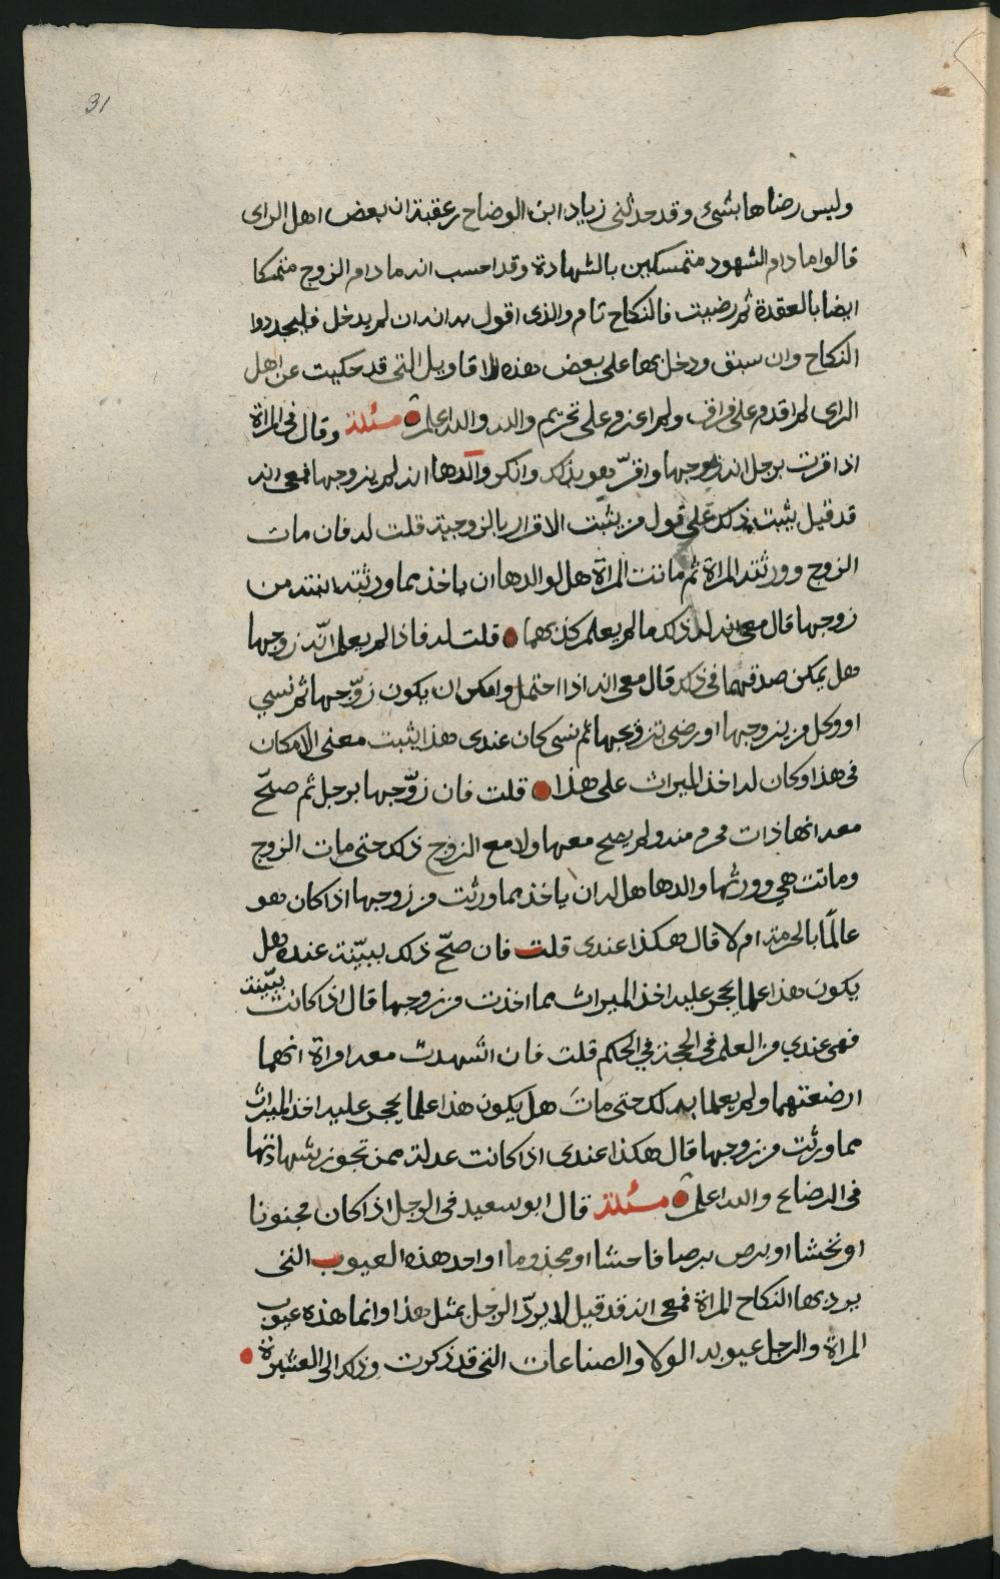 31
وليس رضاها بشيء وقد حدثني زياد ابن الوضاح بن عقبة ان بعض اهل الراى
قالوا ما دام الشهود متمسكين بالشهادة وقد احسب انه ما دام الزوج متمسكا
ايضا بالعقدة ثم رضيت فالنكاح تام والذى اقول به انه ان لم يدخل فليجددوا
النكاح وان سبق ودخل بها على بعض هذه الاقاويل التى قد حكيت عن اهل
الراى لم اقدم على فراق ولم اعزم على تحريم والله والله اعلم مسئلة وقال فى المراة
اذا اقرت برجل انه زوجها واقرّ هو بذلك وانكر والدها انه لم يزوجها فمعى انه
قد قيل يثبت ذلك على قول من يثبت الاقرار بالزوجية قلت له فان مات
الزوج وورثته المراة ثم ماتت المراة هل لوالدها ان ياخذ مما ورثته ابنته من
زوجها قال معى انه له ذلك ما لم يعلم كذبهما قلت له فاذا لم يعلم انّه زوجها
هل يمكن صدقهما فى ذلك قال معى انه اذا احتمل وامكن ان يكون زوّجها ثم نسي
او وكل من يزوجها او رضى تزوجها ثم نسى كان عندى هذا يثبت معنى الامكان
فى هذا وكان له اخذ الميراث على هذا قلت فان زوّجها برجل ثم صحّ
معه انها ذات محرم منه ولم يصح معها ولا مع الزوج ذلك حتى مات الزوج
وماتت هي وورثها والدها هل له ان ياخذ مما ورثت من زوجها اذا كان هو
عالمًا بالحرمة ام لا قال هكذا عندى قلت فان صحّ ذلك ببيّنة عنده هل
يكون هذا علما يحجر عليه اخذ الميراث مما اخذت من زوجها قال اذا كانت بيّنة
فهى عندي من العلم فى الحجة في الحكم قلت فان اشهدت معه امراة انهما
ارضعتهما ولم يعلما بذلك حتى مات هل يكون هذا علما يحجر عليه اخذ الميراث
مما ورثت من زوجها قال هكذا عندى اذا كانت عدلة ممن تجوز شهادتها
فى الرضاع والله اعلم مسئلة قال ابو سعيد فى الرجل اذا كان مجنونا
او نخشا او برص برصا فاحشا او مجذوما او احد هذه العيوب التى
يرد بها النكاح المراة فمعى انه قد قيل لا يردّ الرجل بمثل هذا وانما هذه عيوب
المراة والرجل عيوبه الولا والصناعات التى قد ذكرت وذلك الى العشيرة